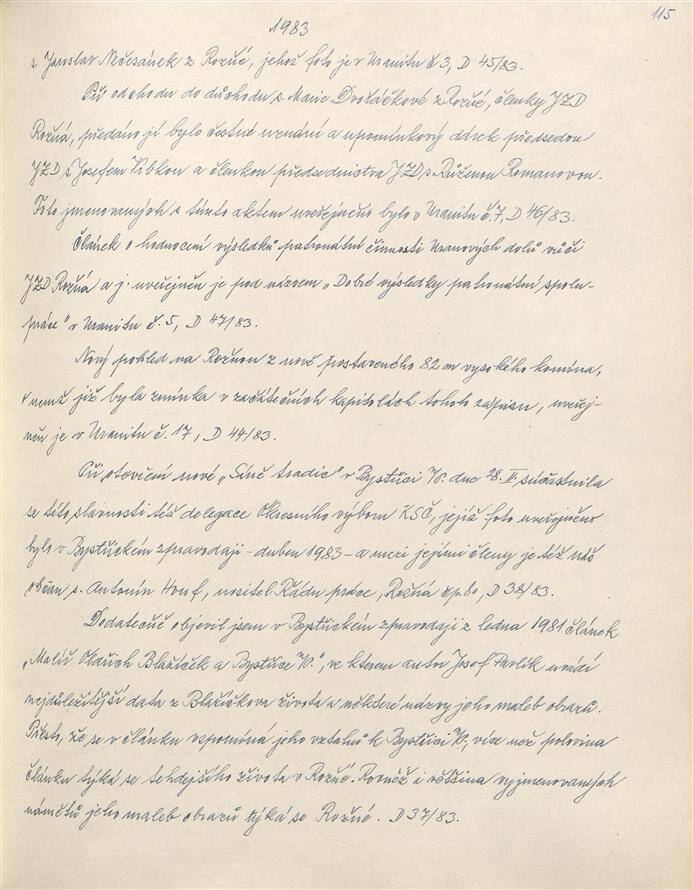 115
1983
s. Jaroslav Nečesánek z Rožné, jehož foto je v Uranitu č 3, D 45/83.
Při odchodu do důchodu s. Marie Dvořáčkové z Rožné, členky JZD
Rožná, předáno jí bylo čestné uznání a upomínkový dárek předsedou
JZD s. Josefem Vibkou a členkou předsednictva JZD s. Růženou Romanovou.
Foto jmenovaných s tímto aktem uveřejněno bylo v Uranitu č. 7, D 46/83.
Článek o hodnocení výsledků patronátní činnosti Uranových dolů vůči
JZD Rožná a j. uveřejněn je pod názvem „Dobré výsledky patronátní spolu-
práce" v Uranitu č. 5, D 47/83.
Nový pohled na Rožnou z nově postaveného 82 m vysokého komína,
o němž již byla zmínka v začátečních kapitolách tohoto zápisu, uveřej-
něn je v Uranitu č. 17, D 44/83.
Při otevření nové „Síně tradic" v Bystřici n/P. dne 28. II. súčastnila
se této slavnosti též delegace Okresního výboru KSČ, jejíž foto uveřejněno
bylo v Bystřickém zpravodaji - duben 1983 - a mezi jejími členy je též náš
občan s. Antonín Houf, nositel Řádu práce, Rožná čp. 80, D 38/83.
Dodatečně objevil jsem v Bystřickém zpravodaji z ledna 1981 článek
„Malíř Oldřich Blažíček a Bystřice n/P.", ve kterém autor Josef Pavlík uvádí
nejdůležitější data z Blažíčkova života a některé názvy jeho maleb obrazů.
Přesto, že se v článku vzpomíná jeho vztahů k Bystřici n/P., více než polovina
článku týká se tehdejšího života v Rožné. Rovněž i většina vyjmenovaných
námětů jeho maleb obrazů týká se Rožné. D 37/83.